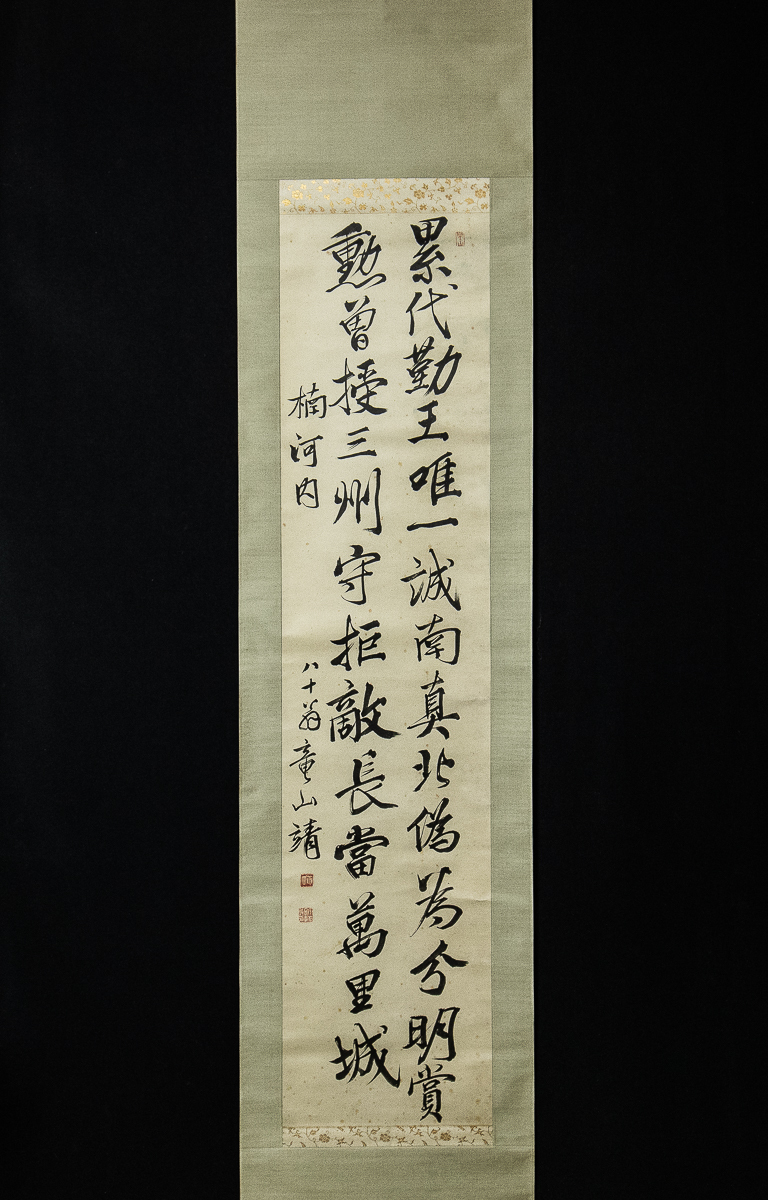 累代勤王唯一誠南真北偽為分明賞
勲曽授三州守拒敵長當萬里城
楠河内
八十翁童山靖